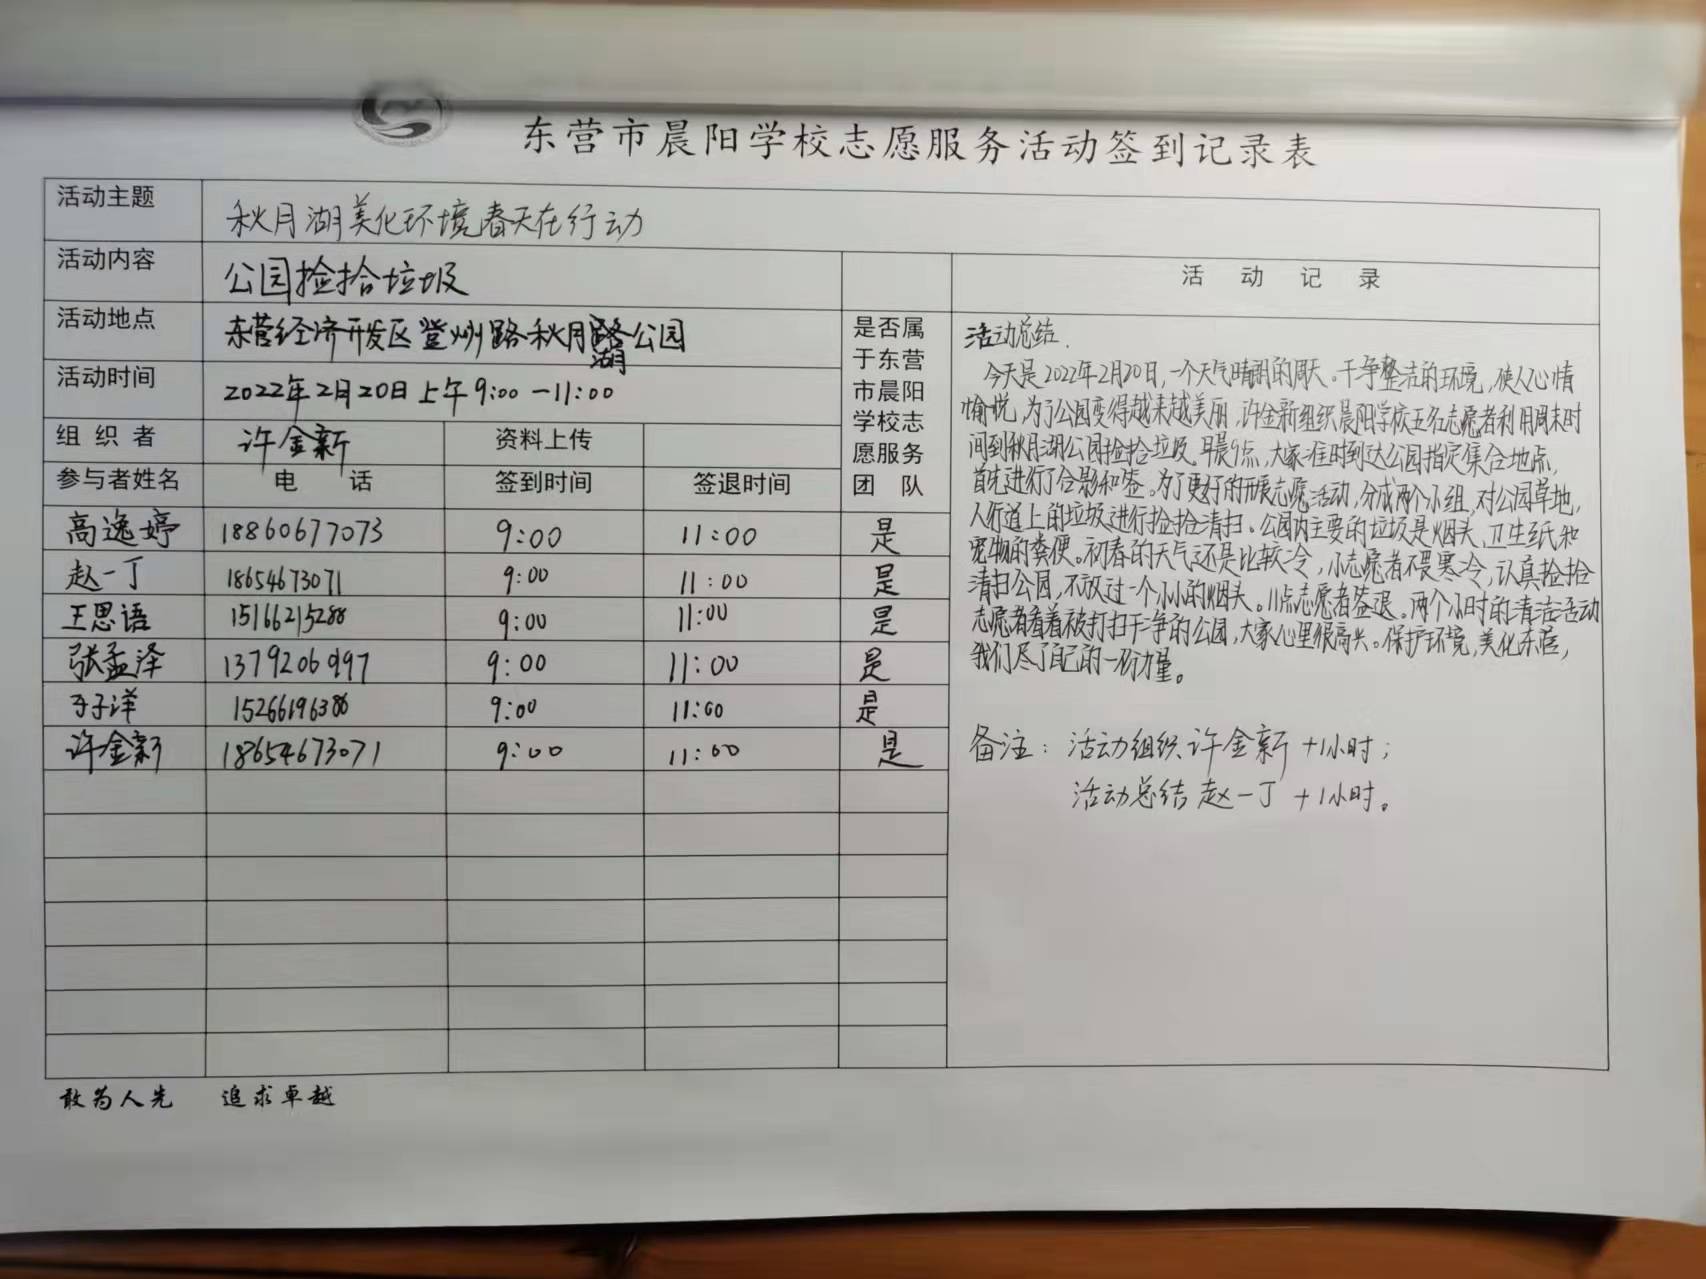 东营市晨阳学校志愿服务活动签到记录表
活动主题 秋月湖美化环境春天在行动
活动内容 公园捡拾垃圾
活动地点 东营经济开发区登州路秋月湖公园
活动时间 2022年2月20日上午9:00—11:00
组织者 许金新 资料上传
参与者姓名 电话 签到时间 签退时间 是否属于东营市晨阳学校志愿服务团队
高逸婷 18860677073 9:00 11:00 是
赵一丁 18654673071 9:00 11:00 是
王思语 15166215288 9:00 11:00 是
张孟泽 9:00 11:00 是
子洋 15266196386 9:00 11:00 是
许金新 18654673071 9:00 11:00 是
活动记录
活动总结.
今天是2022年2月20日,一个天气晴朗的周天。干净整洁的环境,使人心情
愉悦,为了公园变得越来越美丽,许金新组织晨阳学校五名志愿者利用周末时
间到秋月湖公园捡拾垃圾.早晨9点,大家准时到达公园指定集合地点,
首先进行了合影和签。为了更好的开展志愿活动,分成两个小组,对公园草地,
人行道上的垃圾进行捡拾清扫。公园内主要的垃圾是烟头、卫生纸和
宠物的粪便。初春的天气还是比较冷,小志愿者不畏寒冷,认真捡拾
清扫公园,不放过一个小小的烟头。11点志愿者签退。两个小时的清洁活动
志愿者看着被打扫干净的公园,大家心里很高兴。保护环境,美化东营,
我们尽了自己的一份力量。
备注:活动组织许金新+1小时;
活动总结赵一丁+1小时。
敢为人先 追求卓越